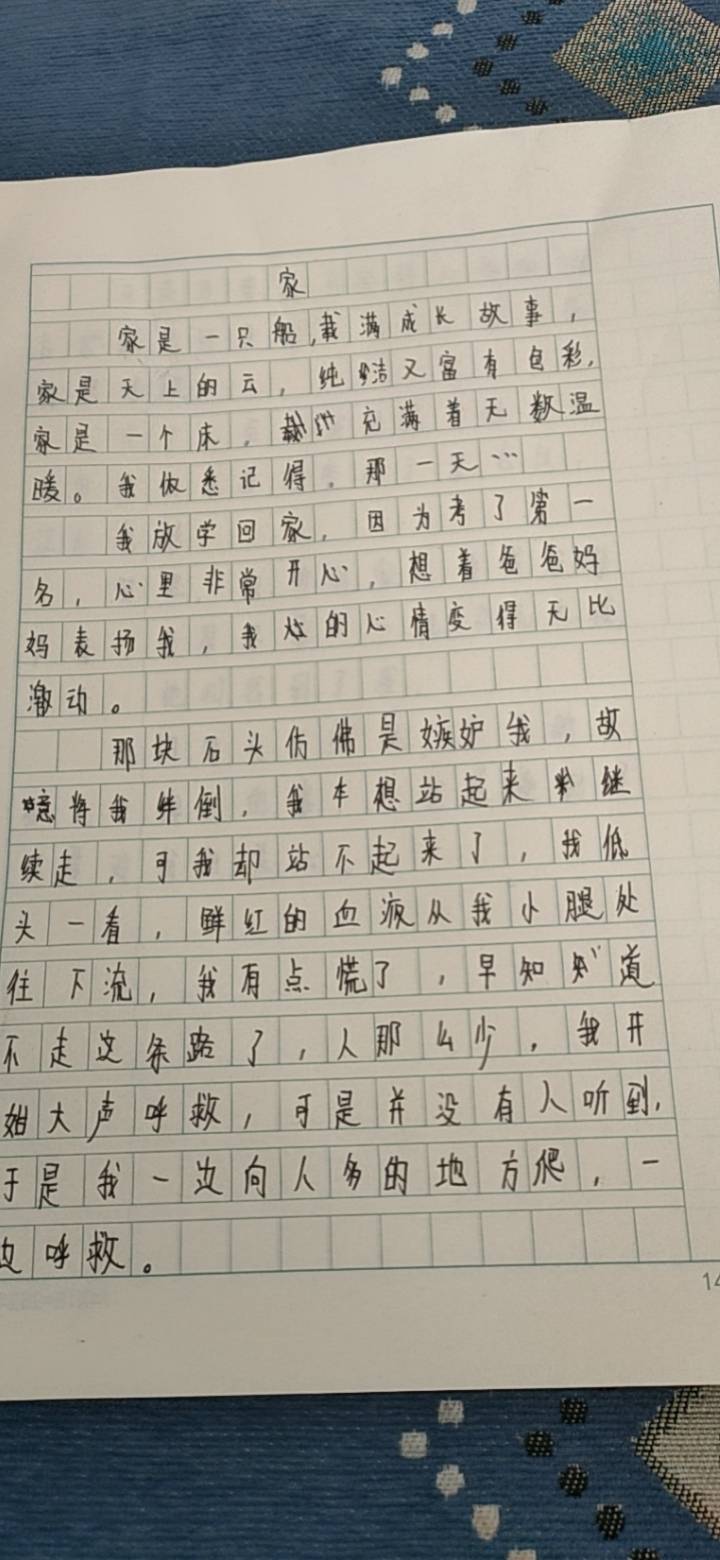 家
家是一只船,载满成长故事,
家是天上的云,纯洁又富有色彩,
家是一个床,充满着无数温
暖。我做悉记得,那一天…
我放学回家,因为考了第一
名,心里非常开心,想着爸爸妈
妈表扬我,我的心情变得无比
激动。
那块石头仿佛是嫉妒我,故
意将我绊倒,我本想站起来继
续走,可我却站不起来了,我低
头一看,鲜红的血液从我小腿处
往下流,我有点慌了,早知道
不走这条路了,人那么少,我开
始大声呼救,可是并没有人听到,
于是我一边向人多的地方爬,一
边呼救。
14